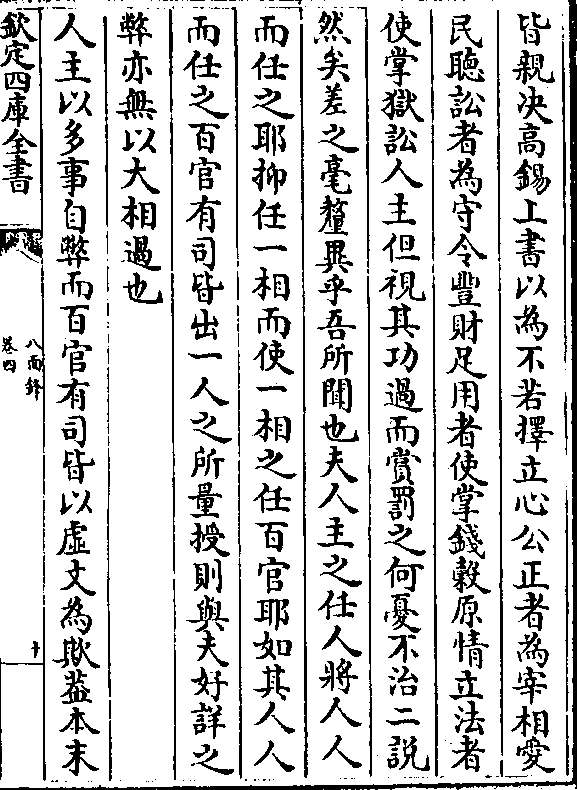 皆親决高錫上書以為不若擇立心公正者為宰相愛
民聽訟者為守令豐財足用者使掌錢穀原情立法者
使掌獄訟人主但視其功過而賞罰之何憂不治二説
然矣差之毫釐異乎吾所聞也夫人主之任人將人人
而任之耶抑任一相而使一相之任百官耶如其人人
而任之百官有司皆出一人之所量授則與夫好詳之
弊亦無以大相過也
人主以多事自弊而百官有司皆以虚文為欺葢本末
欽定四庫全書
八面鋒
卷四
十